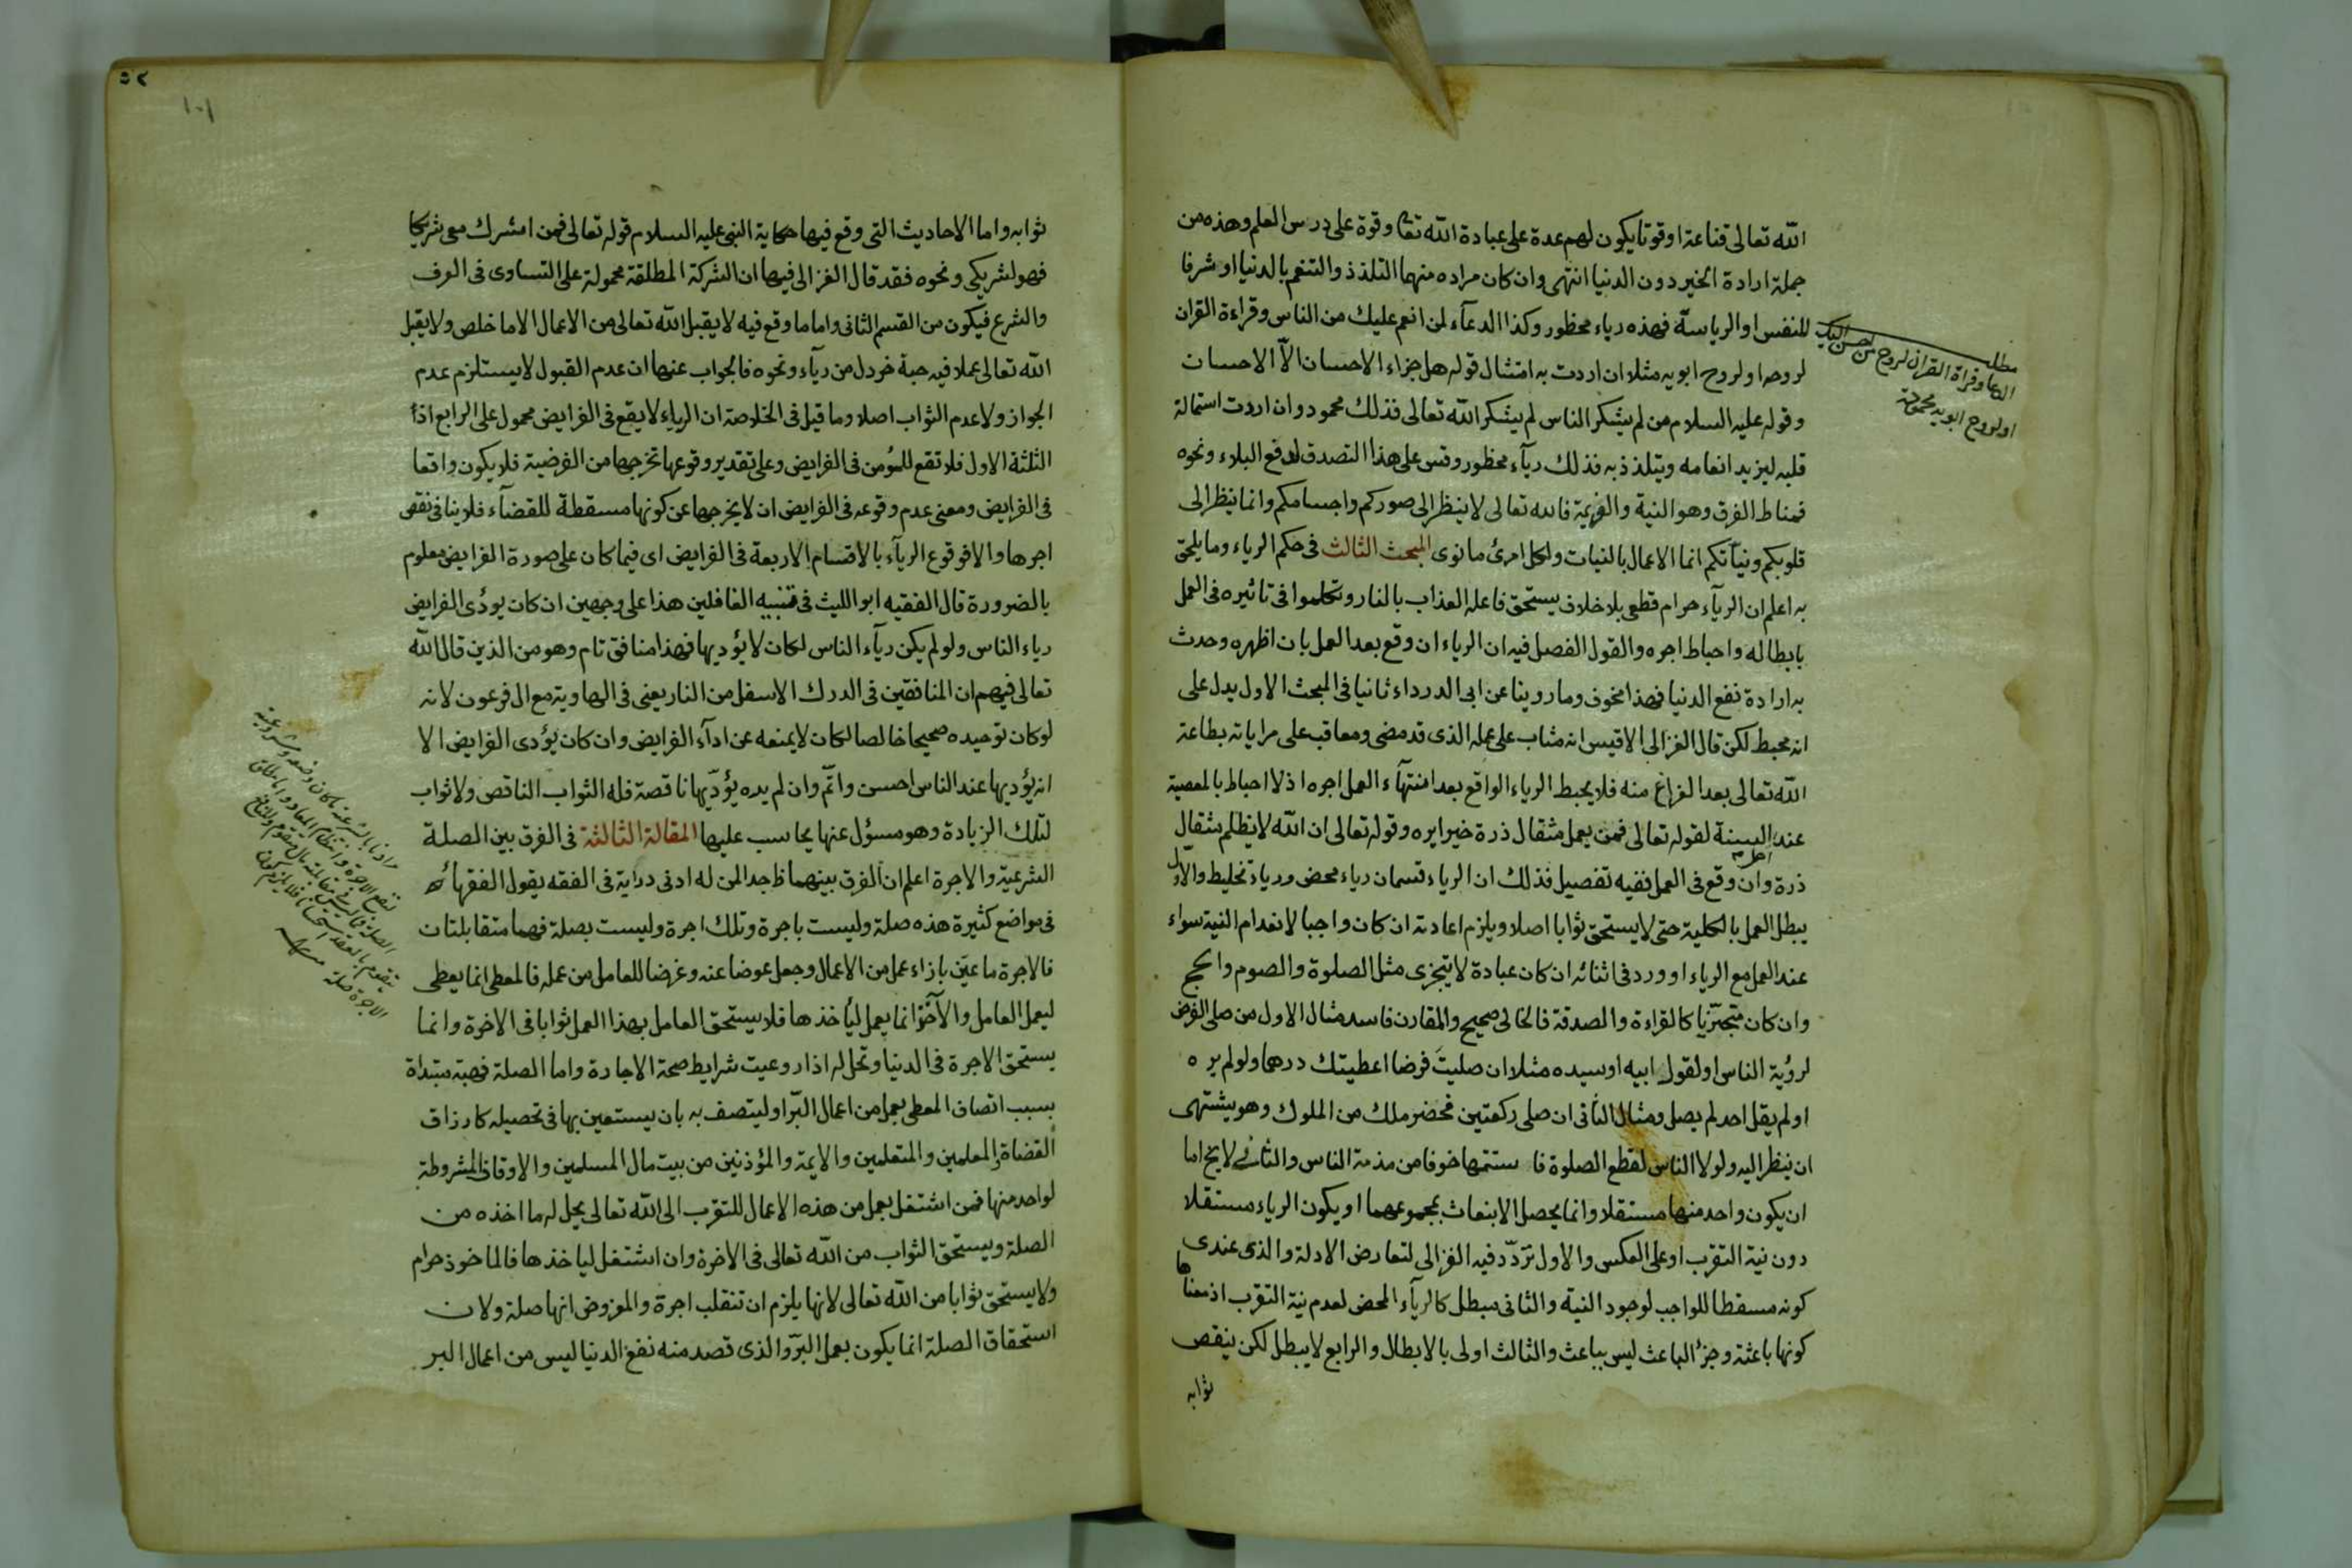 الله تعالى قناعة او قوتا يكون لهم عدة على عبادة الله تعا وقوة على درس العلم وهذه من
جملة ارادة الخير دون الدنيا انتهى وان كان مراده منهما التلذذ والتنعم بالدنيا او شرفا
للنفس او الرياسة فهذه رياء محظور وكذا الدعآء لمن انعم عليك من الناس وقراءة القران
لروحه او لروح ابويه مثلا ان اردت به امتثال قوله هل جزاء الاحسان الا الاحسان
وقوله عليه السلام من لم يشكر الناس لم يشكر الله تعالى فذلك محمود وان اردت استمالة
قلبه ليزيد انعامه ويتلذذ به فذلك ريآء محظور وقس على هذا التصدق لدفع البلاء ونحوه
فمناط الفرق وهو النية والعزيمة فالله تعالى لا ينظر الى صوركم واجسامكم وانما ينظر الى
قلوبكم ونياتكم انما الاعمال بالنيات ولكل امرئ ما نوى المبحث الثالث فى حكم الرياء وما يلحق
به اعلم ان الريآء حرام قطعى بلا خلاف يستحق فاعله العذاب بالنار وتكلموا فى تاثيره فى العمل
بابطاله واحباط اجره والقول الفصل فيه ان الرياء ان وقع بعد العمل بان اظهره وحدث
به ارادة نفع الدنيا فهذا مخوف وما روينا عن ابى الدرداء ثانيا فى المبحث الاول يدل على
انه محبط لكن قال الغزالى الاقيس انه مثاب على عمله الذى قد مضى ومعاقب على مراياته بطاعة
الله تعالى بعد الفراغ منه فلا يحبط الرياء الواقع بعد انتهآء العمل اجره اذ لا احباط بالمعصية
عند اهل السنة لقوله تعالى فمن يعمل مثقال ذرة خيرا يره وقوله تعالى ان الله لا يظلم مثقال
ذرة وان وقع فى العمل ففيه تفصيل فذلك ان الرياء قسمان رياء محض ورياء تخليط والاول
يبطل العمل بالكلية حتى لا يستحق ثوابا اصلا ويلزم اعادته ان كان واجبا لانعدام النية سواء
عند العمل مع الرياء او ورد فى اثنائه ان كان عبادة لا يتجزى مثل الصلوة والصوم والحج
وان كان متجزيا كالقراءة والصدقة فالخالى صحيح والمقارن فاسد مثال الاول من صلى الفرض
لرؤية الناس او لقول ابيه او سيده مثلا ان صليت فرضا اعطيتك درهما ولو لم يره
او لم يقل احد لم يصل ومثال الثانى ان صلى ركعتين فحضر ملك من الملوك وهو يشتهى
ان ينظر اليه ولولا الناس لقطع الصلوة فاستتمها خوفا من مذمة الناس والثانى لا يخ اما
ان يكون واحد منهما مستقلا وانما يحصل الانبعاث بمجموعهما او يكون الرياء مستقلا
دون نية التقرب او على العكس والاول تردد فيه الغزالى لتعارض الادلة والذى عندى
كونه مسقطا للواجب لوجود النية والثانى مبطل كالريآء المحض لعدم نية التقرب اذ معناها
كونها باعثة وجزأ الباعث ليس بباعث والثالث اولى بالابطال والرابع لا يبطل لكن ينقص
ثوابه
مطلب
الدعا وقراة القران لروح من احسن اليك
او لروح ابويه
٥٢
١٠١
ثوابه واما الاحاديث التى وقع فيها حكاية النبى عليه السلام قوله تعالى فمن اشرك معى شريكا
فهو لشريكى ونحوه فقد قال الغزالى فيها ان الشركة المطلقة محمولة على التساوى فى العرف
والشرع فيكون من القسم الثانى واما ما وقع فيه لا يقبل الله تعالى من الاعمال الا ما خلص ولا يقبل
الله تعالى عملا فيه حبة خردل من ريآء ونحوه فالجواب عنها ان عدم القبول لا يستلزم عدم
الجواز ولا عدم الثواب اصلا وما قيل فى الخلاصة ان الرياء لا يقع فى الفرايض محمول على الرابع اذ
الثلثة الاول فلا تقع للمؤمن فى الفرايض وعلى تقدير وقوعها تخرجها من الفرضية فلا يكون واقعا
فى الفرايض ومعنى عدم وقوعه فى الفرايض ان لا يخرجها عن كونها مسقطة للقضآء فلا ينافى نقص
اجرها والا فوقوع الريآء بالاقسام الاربعة فى الفرايض اى فيما كان على صورة الفرايض معلوم
بالضرورة قال الفقيه ابو الليث فى تنبيه الغافلين هذا على وجهين ان كان يؤدى الفرايض
رياء الناس ولو لم يكن ريآء الناس لكان لا يؤديها فهذا منافق تام وهو من الذين قال الله
تعالى فيهم ان المنافقين فى الدرك الاسفل من النار يعنى فى الهاوية مع ال فرعون لانه
لو كان توحيده صحيحا خالصا لكان لا يمنعه عن ادآء الفرايض وان كان يؤدى الفرايض الا
انه يؤديها عند الناس احسن واتم وان لم يره يؤديها ناقصة فله الثواب الناقص ولا ثواب
لتلك الزيادة وهو مسؤل عنها يحاسب عليها المقالة الثالثة فى الفرق بين الصلة
الشرعية والاجرة اعلم ان الفرق بينهما ظ جدا لمن له ادنى دراية فى الفقه يقول الفقهاء
فى مواضع كثيرة هذه صلة وليست باجرة وتلك اجرة وليست بصلة فهما متقابلتان
فالاجرة ما عين بازاء عمل من الاعمال وجعل عوضا عنه وغرضا للعامل من عمله فالمعطى انما يعطى
ليعمل العامل والآخذ انما يعمل ليأخذها فلا يستحق العامل بهذا العمل ثوابا فى الاخرة وانما
يستحق الاجرة فى الدنيا وتحل له اذا روعيت شرايط صحة الاجارة واما الصلة فهبة مبتداة
بسبب اتصاف المعطى بعمل من اعمال البر او ليتصف به بان يستعين بها فى تحصيله كارزاق
القضاة والمعلمين والمتعلمين والايمة والمؤذنين من بيت مال المسلمين والاوقاف المشروطة
لواحد منها فمن اشتغل بعمل من هذه الاعمال للتقرب الى الله تعالى يحل له ما اخذه من
الصلة ويستحق الثواب من الله تعالى فى الاخرة وان اشتغل لياخذها فالماخوذ حرام
ولا يستحق ثوابا من الله تعالى لانها يلزم ان تنقلب اجرة والمفروض انها صلة ولان
استحقاق الصلة انما يكون بعمل البر والذى قصد منه نفع الدنيا ليس من اعمال البر